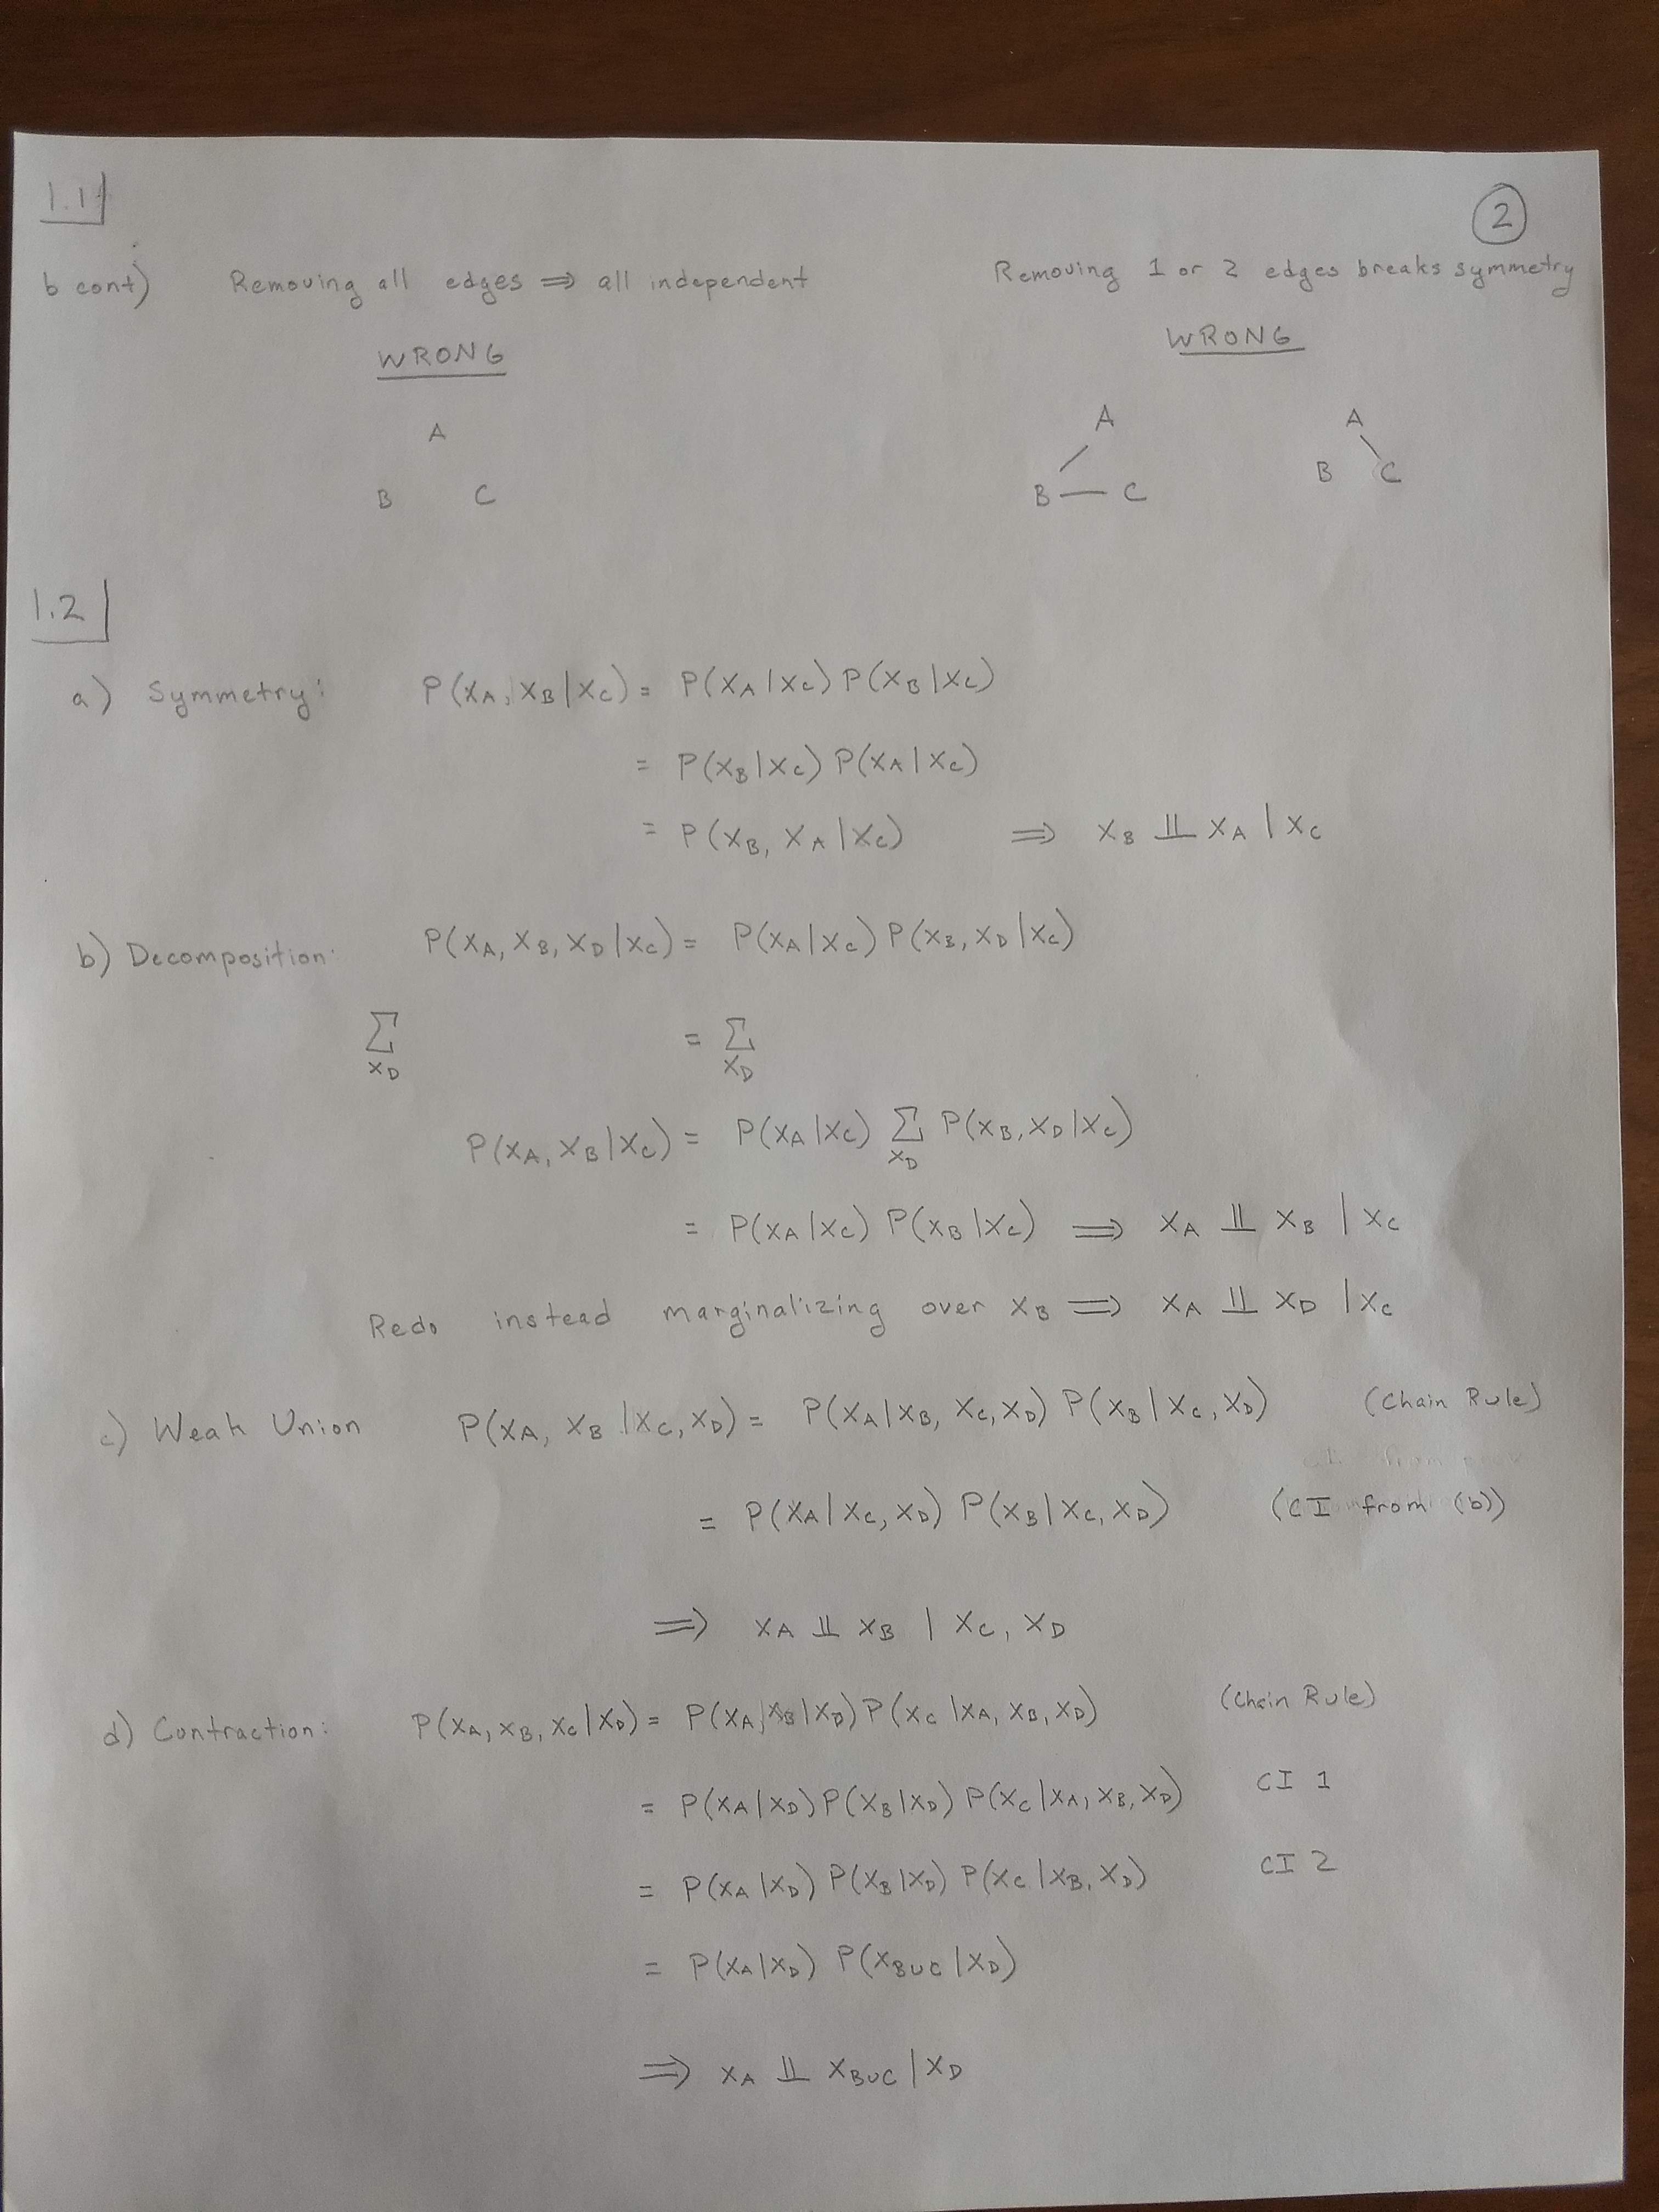 1.1
2
b cont) Removing all edges ⇒ all independent
WRONG
A
B C
Removing 1 or 2 edges breaks symmetry
WRONG
A
B — C
A
B C
1.2
a) Symmetry: P(X_A, X_B | X_C) = P(X_A | X_C) P(X_B | X_C)
= P(X_B | X_C) P(X_A | X_C)
= P(X_B, X_A | X_C) ⇒ X_B ⫫ X_A | X_C
b) Decomposition: P(X_A, X_B, X_D | X_C) = P(X_A | X_C) P(X_B, X_D | X_C)
Σ_{X_D} = Σ_{X_D}
P(X_A, X_B | X_C) = P(X_A | X_C) Σ_{X_D} P(X_B, X_D | X_C)
= P(X_A | X_C) P(X_B | X_C) ⇒ X_A ⫫ X_B | X_C
Redo instead marginalizing over X_B ⇒ X_A ⫫ X_D | X_C
c) Weak Union P(X_A, X_B | X_C, X_D) = P(X_A | X_B, X_C, X_D) P(X_B | X_C, X_D) (Chain Rule)
= P(X_A | X_C, X_D) P(X_B | X_C, X_D) (CI from (b))
⇒ X_A ⫫ X_B | X_C, X_D
d) Contraction: P(X_A, X_B, X_C | X_D) = P(X_A, X_B | X_D) P(X_C | X_A, X_B, X_D) (Chain Rule)
= P(X_A | X_D) P(X_B | X_D) P(X_C | X_A, X_B, X_D) CI 1
= P(X_A | X_D) P(X_B | X_D) P(X_C | X_B, X_D) CI 2
= P(X_A | X_D) P(X_{B∪C} | X_D)
⇒ X_A ⫫ X_{B∪C} | X_D